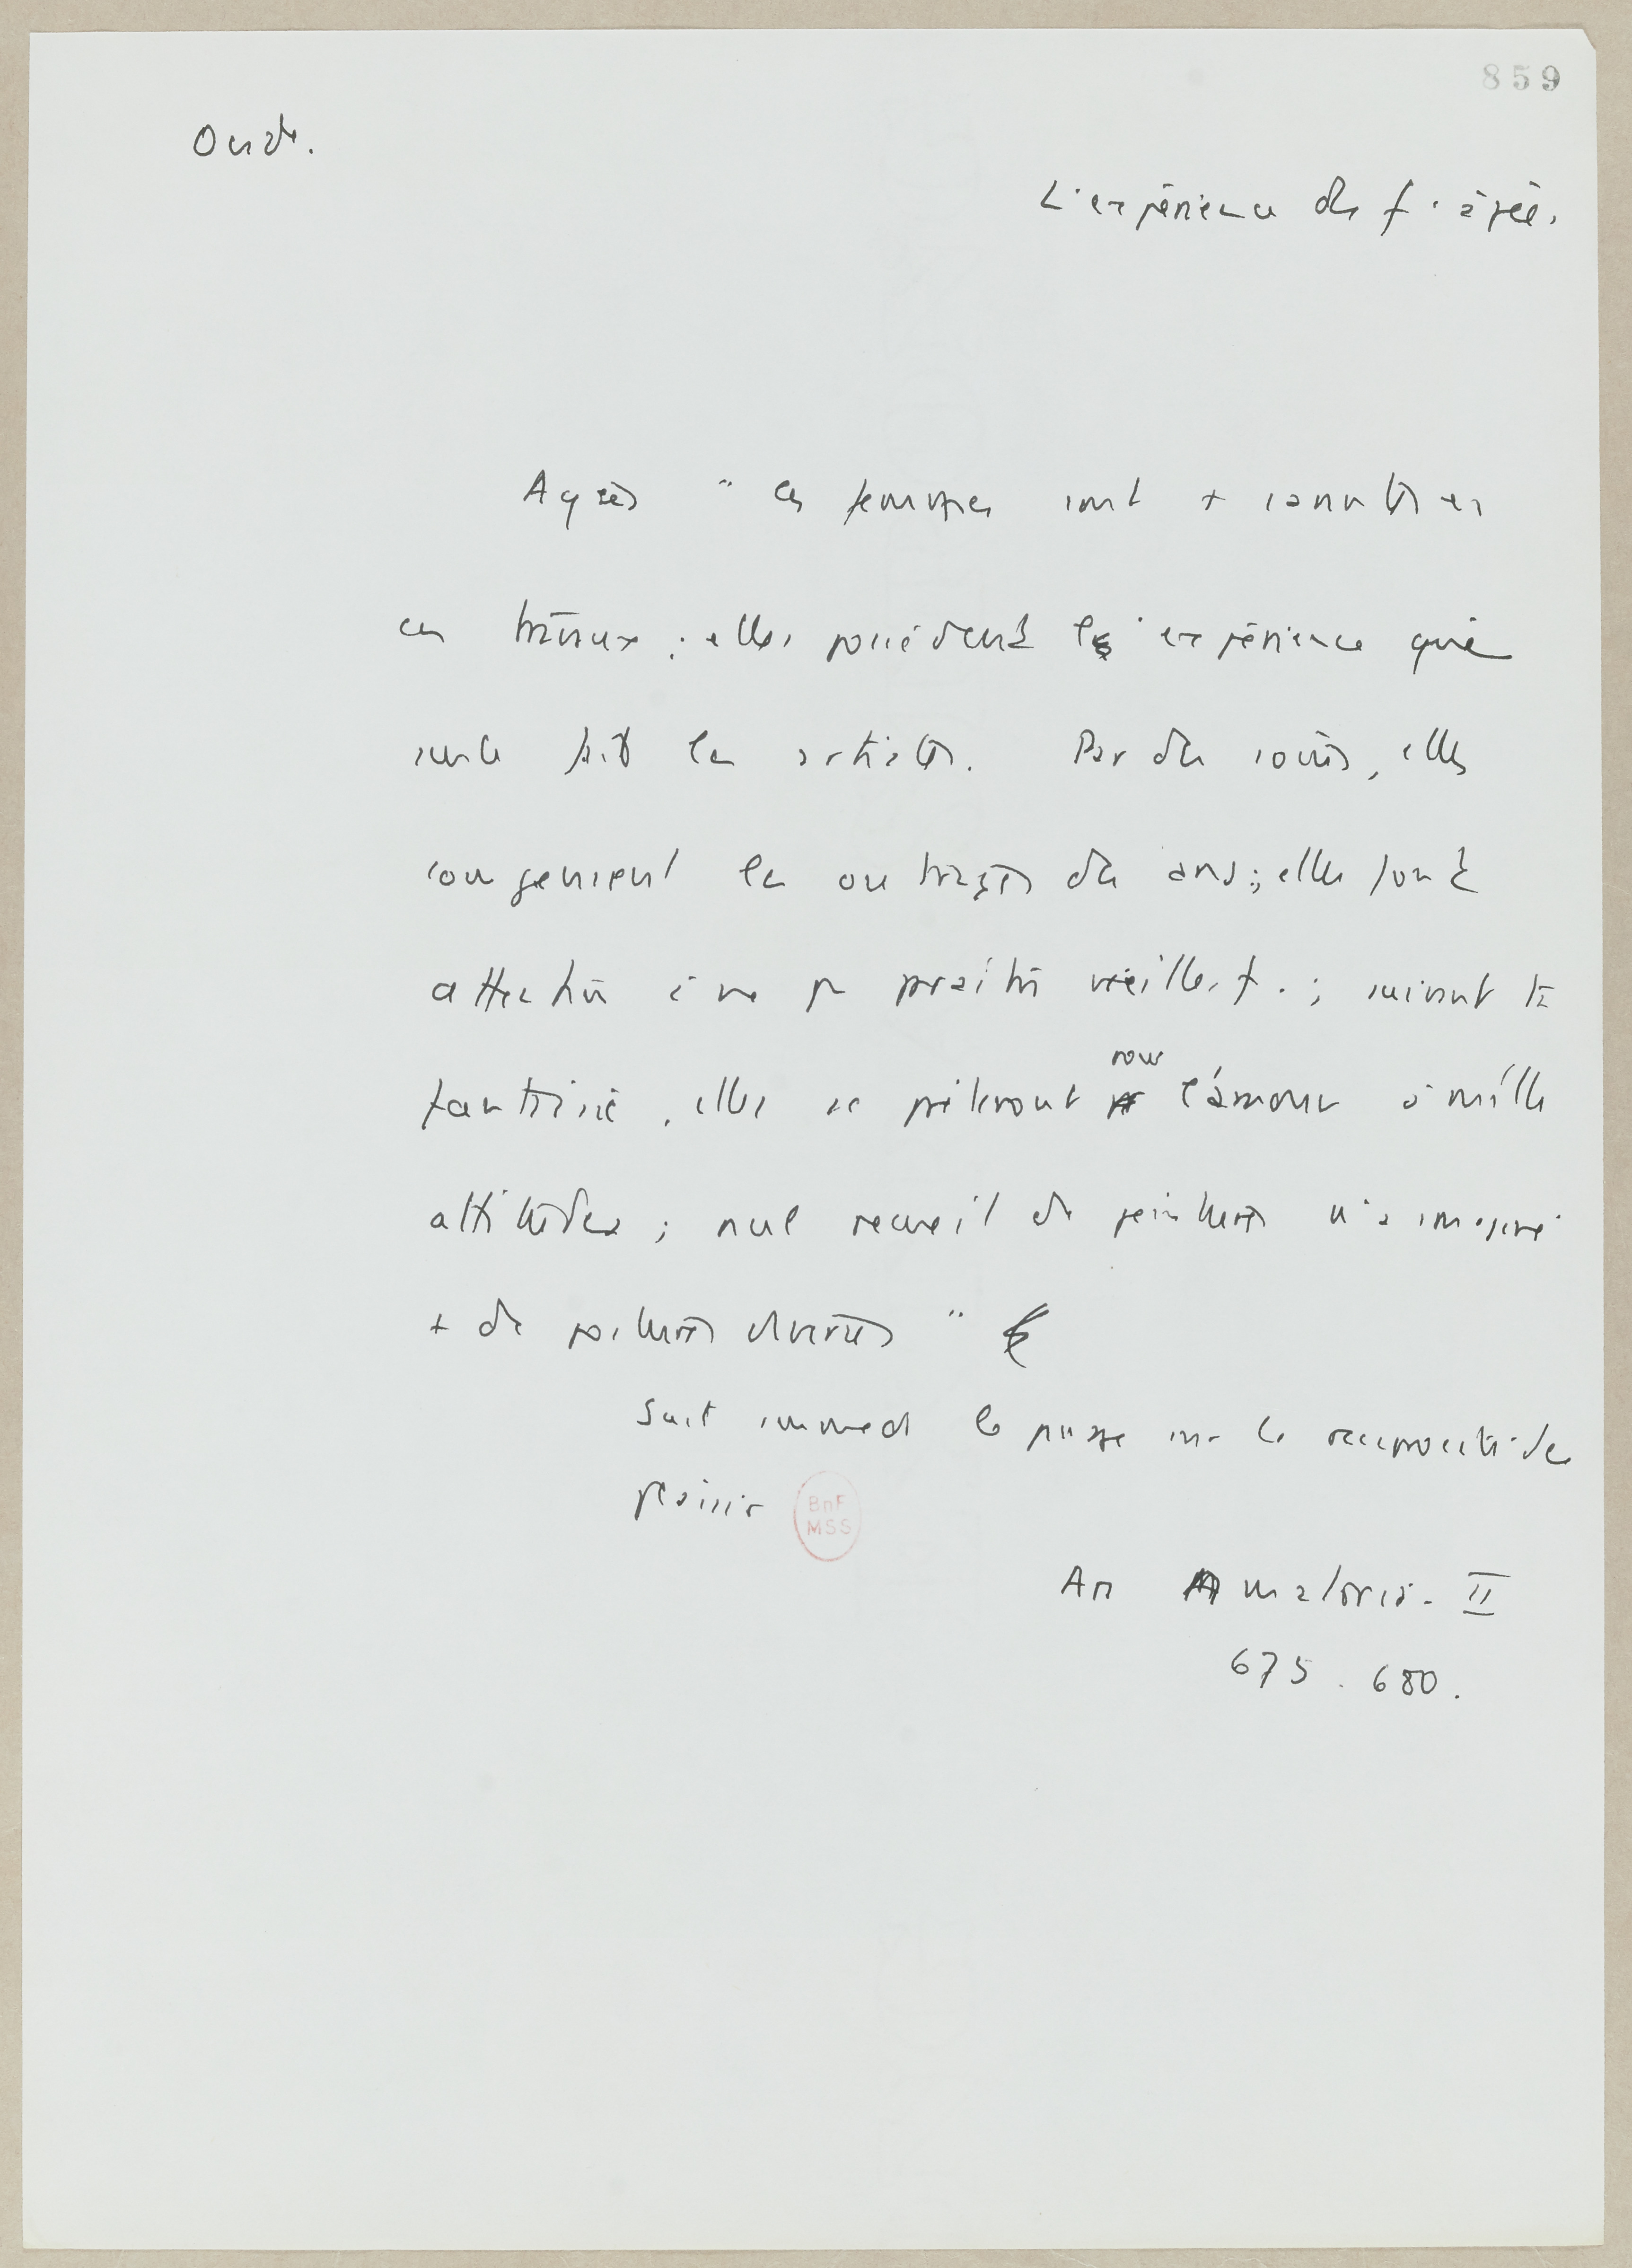 859
Ovide.
L'expérience des f. âgées.
Après " ces femmes sont + savantes
ces travaux ; elles possèdent l'expérience qui
seule fait les artistes. Par des soins, elles
compensent les outrages des ans ; elles font
attention à ne pas paraître vieilles f. ; suivant ta
fantaisie, elles se prêteront pour l'amour à mille
attitudes ; nul recueil de peintures n'a imaginé
+ de postures diverses "
Suit immed le passage sur la réciprocité de
plaisir
BnF
MSS
Ars Amatoria. II
675. 680.